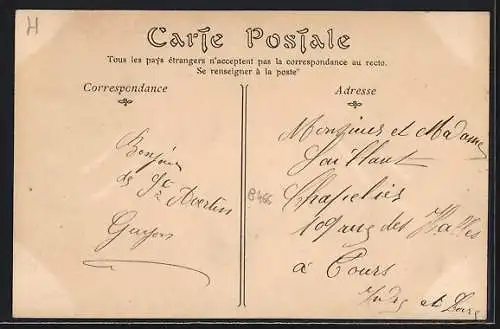 H
Carte Postale
Tous les pays étrangers n'acceptent pas la correspondance au recto.
Se renseigner à la poste"
Correspondance
Adresse
Bonjour
de St Avertin
Monsieur et Madame
Saillant
Chapelier
des Halles
à Tours
Indre et Loire